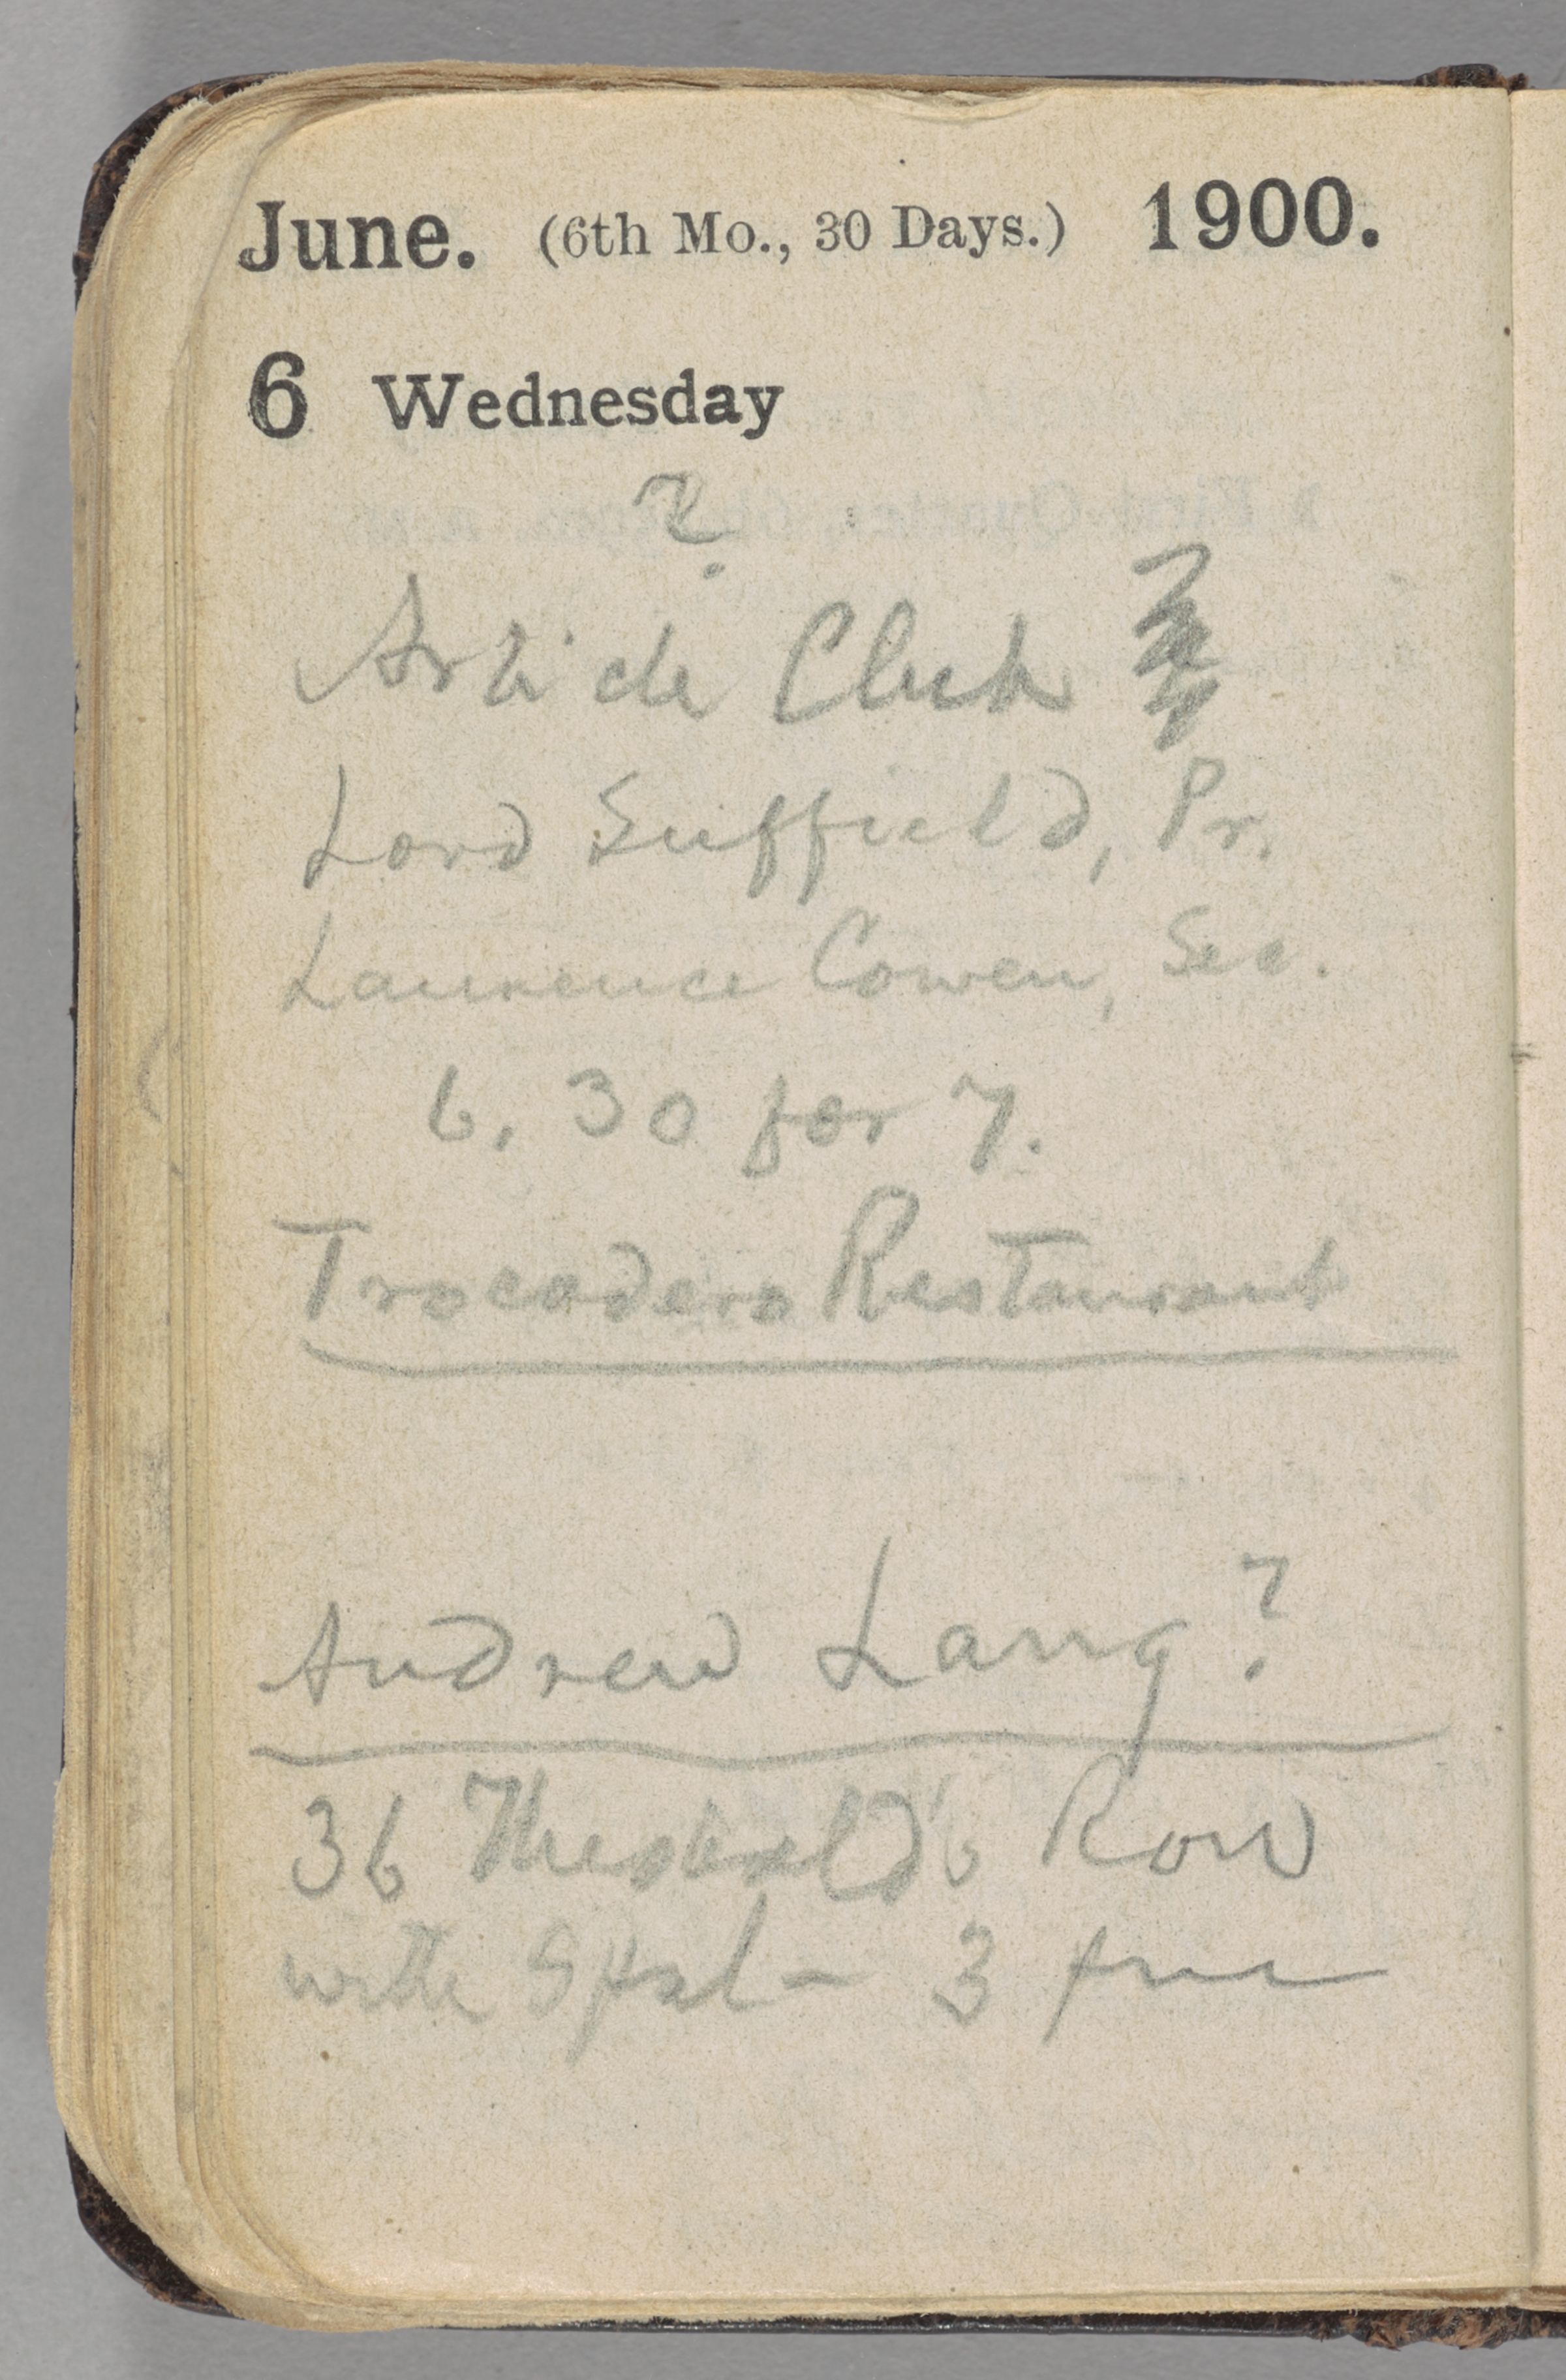 June. (6th Mo., 30 Days.) 1900.
6 Wednesday
?
Article Club
Lord Suffield, Pr.
Laurence Cowen, Sec.
6.30 for 7.
Trocadero Restaurant
Andrew Lang?
36 Theobald's Row
with Spal— 3 pm